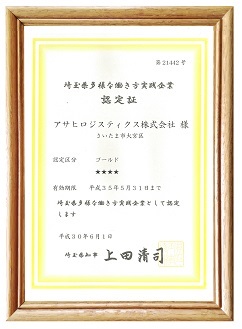 第21442号
埼玉県多様な働き方実践企業
認定証
アサヒロジスティクス株式会社 様
さいたま市大宮区
認定区分　ゴールド
★★★★
有効期限　平成35年5月31日まで
埼玉県多様な働き方実践企業として認定
します
平成30年6月1日
埼玉県知事 上田清司